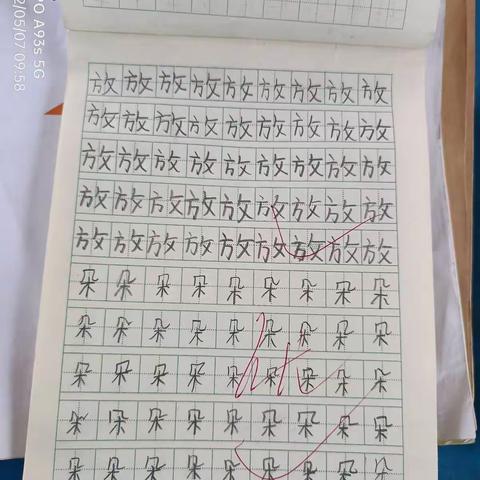 放放放放放放放放放
放放放放放放放放放
放放放放放放放放放
放放放放放放放放放
放放放放放放放放放
朵朵朵朵朵朵朵朵朵
朵朵朵朵朵朵朵朵朵
朵朵朵朵朵朵朵朵朵
朵朵朵朵朵朵朵朵朵
朵朵朵朵朵朵朵朵朵
PO A93s 5G
2/05/07 09:58